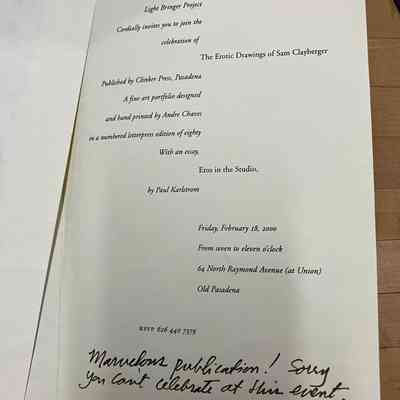 Light Bringer Project
Cordially invites you to join the
celebration of
The Erotic Drawings of Sam Clayberger
Published by Clinker Press, Pasadena
A fine art portfolio designed
and hand printed by Andre Chaves
in a numbered letterpress edition of eighty
With an essay,
Eros in the Studio,
by Paul Karlstrom
Friday, February 18, 2000
From seven to eleven o'clock
64 North Raymond Avenue (at Union)
Old Pasadena
RSVP 626 440 7379
Marvelous publication! Sorry
you cant celebrate at this event.